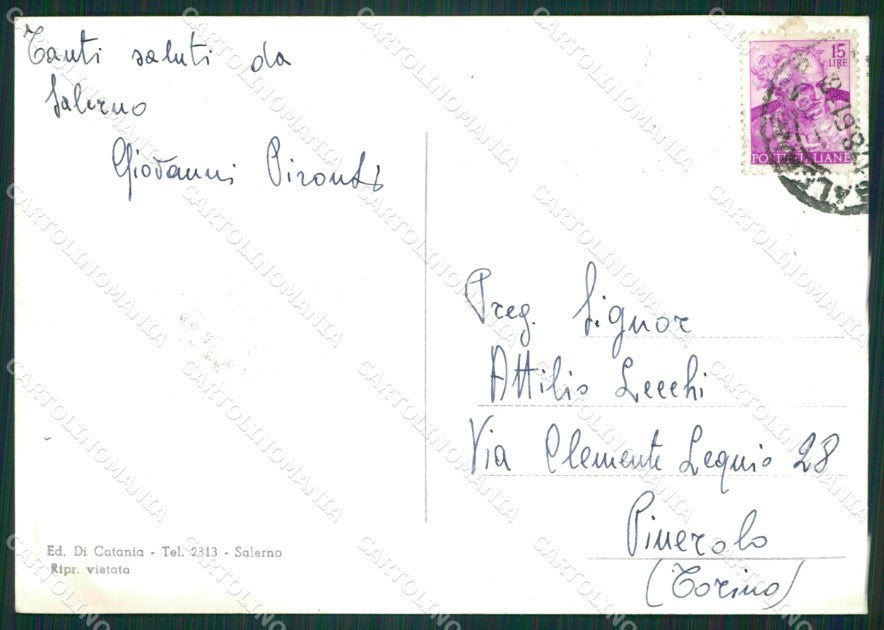 Tanti saluti da
Salerno
Giovanni Pironti
15
LIRE
POSTE ITALIANE
Preg. Signor
Attilio Lecchi
Via Clemente Lequio 28
Pinerolo
(Torino)
Ed. Di Catania - Tel. 2313 - Salerno
Ripr. vietata
CARTOLINOMANIA